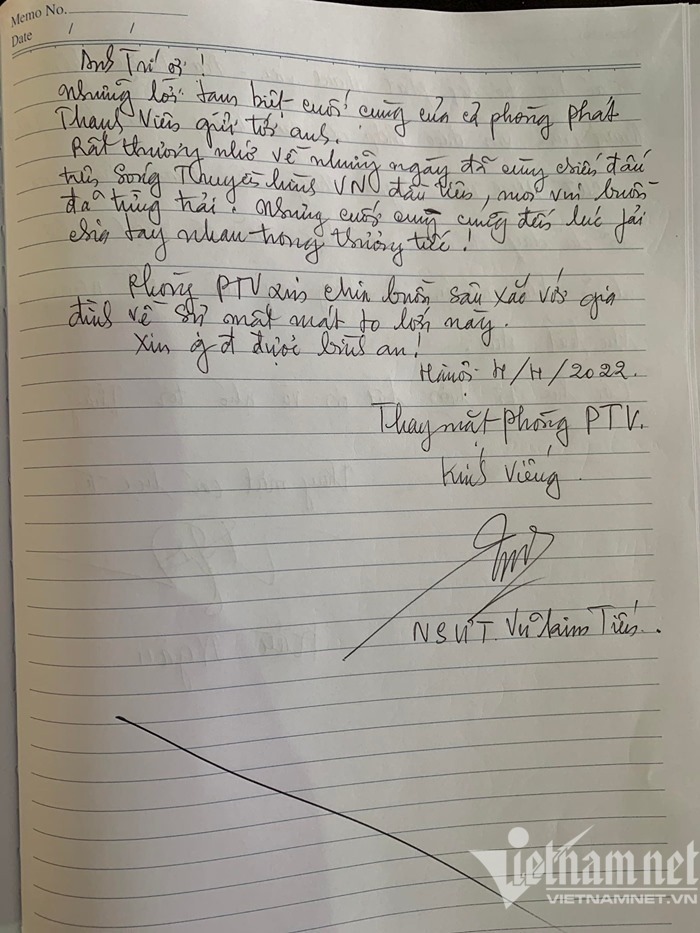 Memo No.
Date / /
Anh Trí ơi!
Những lời tam biệt cuối cùng của cả phòng phát
Thanh Viên gửi tới anh.
Rất thương nhớ về những ngày đã cùng chiến đấu
trên song Truyền hình VN đầu tiên, mọi vui buồn
đã từng trải. Nhưng cuối cùng cũng đến lúc fải
chia tay nhau trong thương tiếc!
Phòng PTV xin chia buồn sâu xắc với gia
đình về sự mất mát to lớn này.
Xin gđ được bình an!
Hà nội 4/4/2022.
Thay mặt phòng PTV.
Kính Viếng
NSƯT. Vũ Kim Tiến.
Vietnamnet
VIETNAMNET.VN